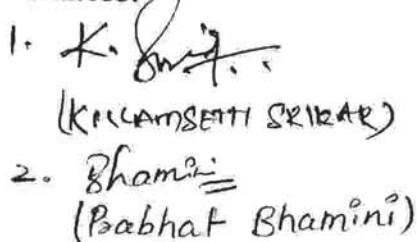 1. K.
(KILLAMSETTI SRIKAR)
2. Bhamini
(Prabhat Bhamini)